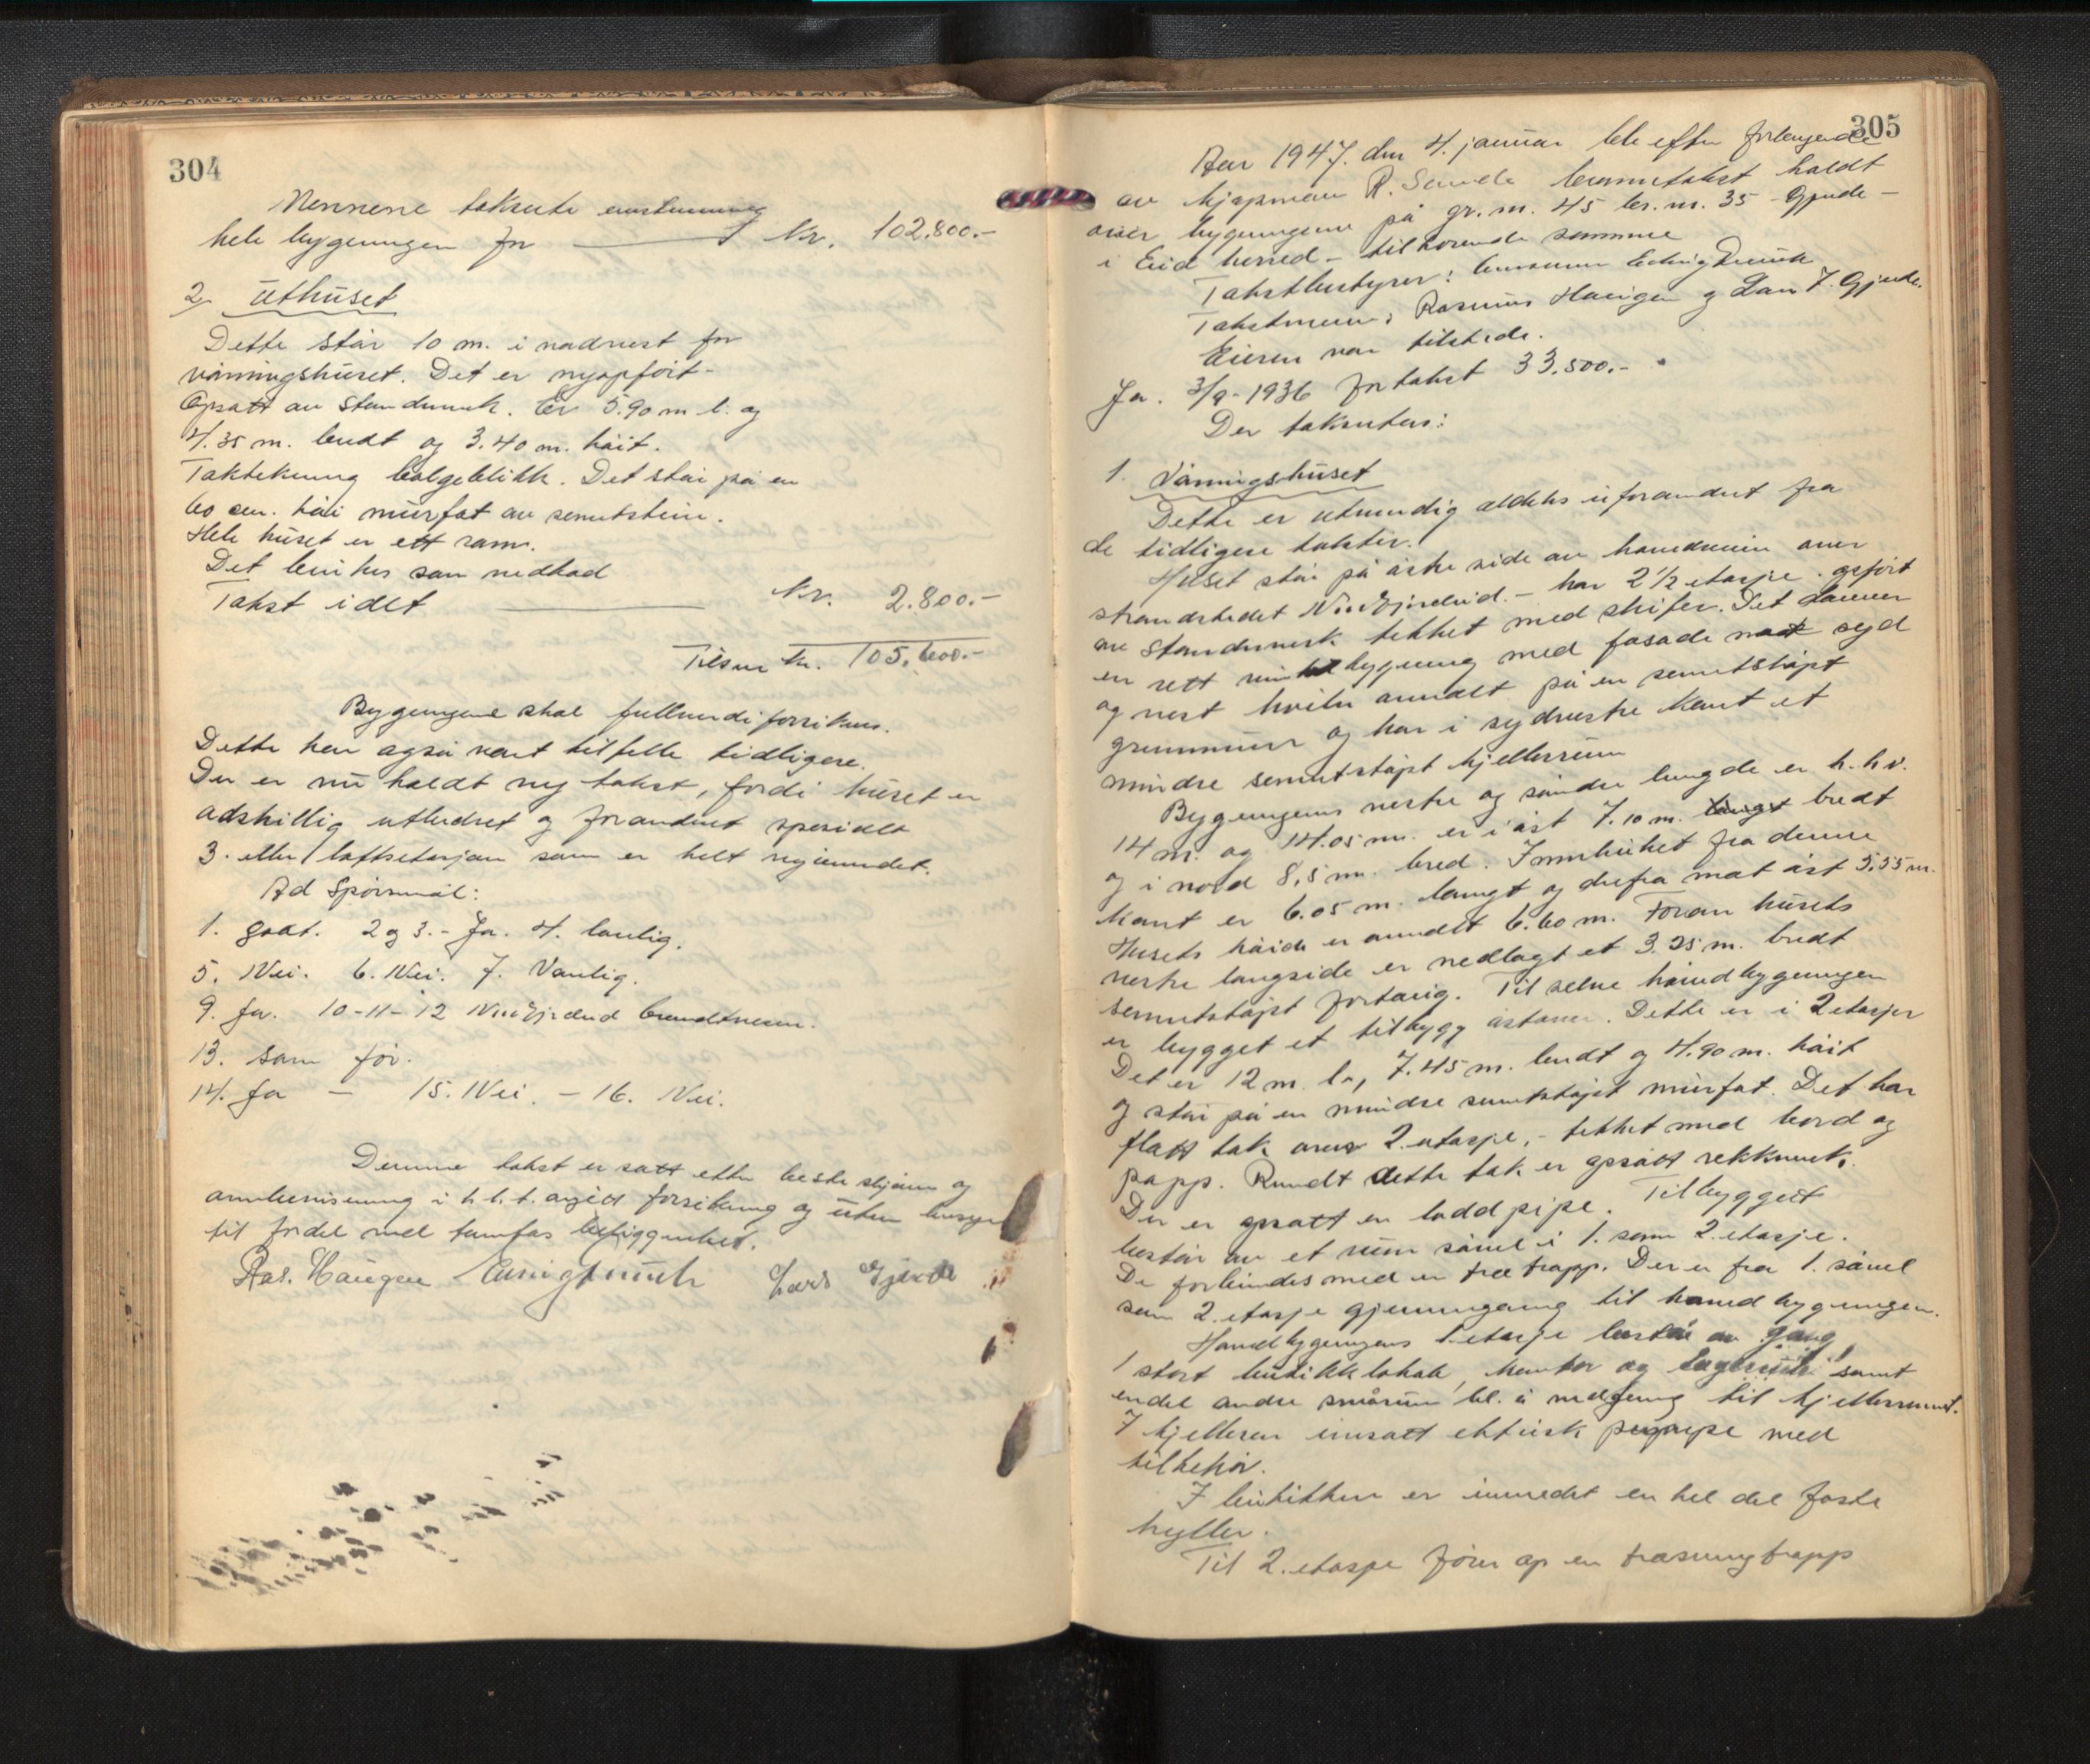 304
Mennene takserte enstemmig
hele bygningen for Kr. 102.800.-
2. Uthuset
Dette står 10 m. i nordvest for
våningshuset. Det er nyopført -
Opsatt av standverk. Er 5.90 m l. og
4.35 m. bredt og 3.40 m. høit.
Taktekning bølgeblikk. Det står på en
60 cm. høi mürfot av sementstein.
Hele hüset er ett rom.
Det benyttes som vedbod
Takst i det Kr. 2.800.-
Tilsm kr. 105.600.-
Bygningene skal fullverdiforsikres.
Dette har også vært tilfelle tidligere.
Der er nü holdt ny takst, fordi hüset er
adskillig utbedret og forandret spesielt
3. eller loftsetasjen som er helt nyinnredet.
Ad Spørsmål:
1. godt. 2 og 3. - Ja. 4. lovlig.
5. Nei. 6. Nei. 7. Vanlig.
9. Ja. 10-11-12 Nordfjordeid brandvesen.
13. Som før.
14. Ja - 15. Nei. - 16. Nei.
Denne takst er satt efter beste skjønn og
overbevisning i h.b.t. avgitt forsikring og üten hensyn
til fordel ved tomtas beliggenhet.
Ras. Haügen Lars Gjerde
305
Aar 1947. den 4. januar ble efter forlangende
av kjøpmann R. Sande branntakst holdt
over bygningene på gr.nr. 45 br.nr. 35 Gjerde -
i Eid herred - tilhørende samme
Takstbestyrer: lensmann
Takstmenn: Rasmus Haugen og Lars J. Gjerde.
Eieren var tilstede.
Ja. 3/9-1936 for takst 33.500.-
Der takseres:
1. Våningshüset
Dette er utvendig aldeles üforandret fra
de tidligere takster.
Hüset står på østre side av hovedveien over
strandstedet Nordfjordeid. - har 2 1/2 etasje. opført
av standverk tekket med skifer. Det danner
en rett vinkelbygning med fasade mot syd
og vest hviler overalt på en sementstøpt
grunnmür og har i sydvestre kant et
mindre sementstøpt kjellerrüm
Bygningens vestre og søndre lengde er h.h.v.
14 m. og 14.05 m. er i øst 7.10 m. langt bredt
og i nord 8,5 m. bred. Innhuket fra denne
kant er 6.05 m. langt og derfra mot øst 5,55 m.
Husets høide er overalt 6.60 m. Foran hüsets
vestre langside er nedlagt et 3.25 m. bredt
sementstøpt fortaug. Til selve hovedbygningen
er bygget et tilbygg østover. Dette er i 2 etasjer
Det er 12 m. l., 7.45 m. bredt og 4.90 m. høit
og står på en mindre sementstøpt mürfot. Det har
flatt tak over 2. etasje, - tekket med bord og
papp. Rundt dette tak er opsatt rekkverk.
Der er opsatt en loddpipe. Tilbygget
består av et rüm såvel i 1. som 2. etasje.
De forbindes med en tretrapp. Der er fra 1. såvel
som 2. etasje gjennomgang til hovedbygningen.
Hovedbygningens 1. etasje består av gang
1 stort bütikklokale, kontor og lagerrüm samt
endel andre smårüm bl. a nedgang til kjellerrümmet.
I kjelleren innsatt elektrisk pumpe med
tilbehør.
I bütikken er innredet en hel del faste
hyller.
Til 2. etasje fører op en tresvingtrapp